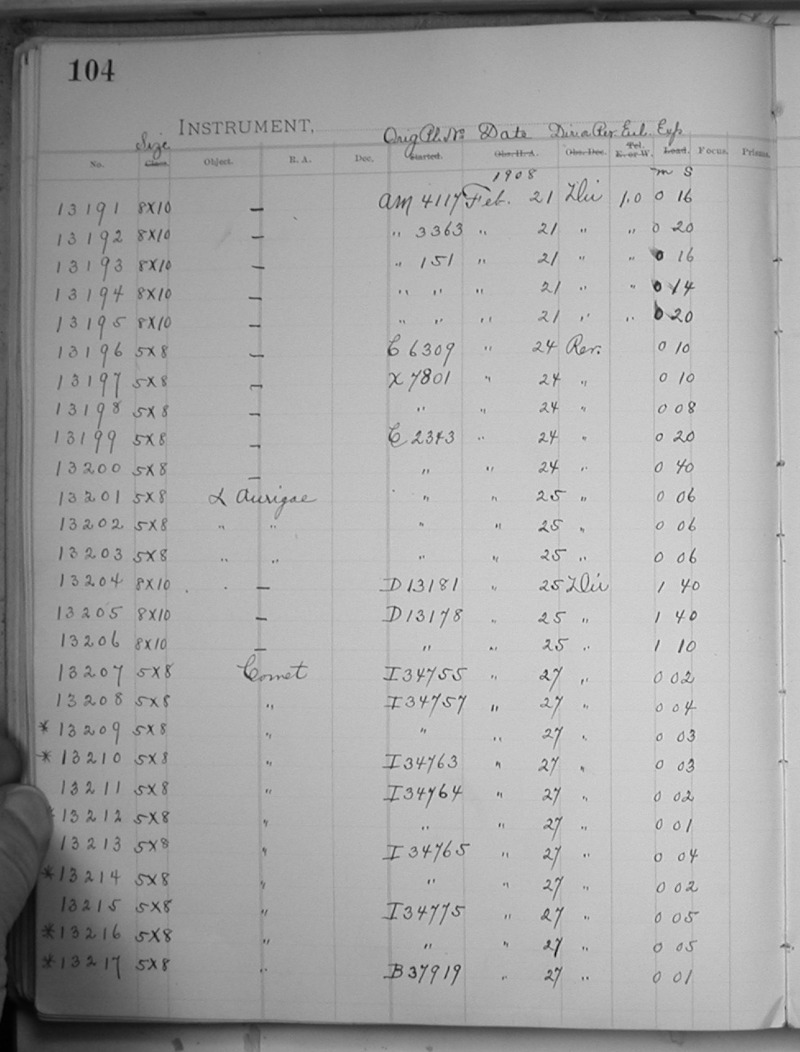 104
INSTRUMENT,
Size Orig Pl. No Date Dir or Rev. Enl. Exp.
No. Class. Object. R. A. Dec. Started. Obs. H. A. Obs. Dec. Tel. E. or W. Lead. Focus. Prisms.
1908 m s
13191 8X10 — AM 4117 Feb. 21 Dir 1.0 0 16
13192 8X10 — " 3363 " 21 " " 0 20
13193 8X10 — " 151 " 21 " " 0 16
13194 8X10 — " " " 21 " " 0 14
13195 8X10 — " " " 21 " " 0 20
13196 5X8 — C 6309 " 24 Rev. 0 10
13197 5X8 — X 7801 " 24 " 0 10
13198 5X8 — " " 24 " 0 08
13199 5X8 — C 2343 " 24 " 0 20
13200 5X8 — " " 24 " 0 40
13201 5X8 α Aurigae " " 25 " 0 06
13202 5X8 " " " " 25 " 0 06
13203 5X8 " " " " 25 " 0 06
13204 8X10 — D13181 " 25 Dir 1 40
13205 8X10 — D13178 " 25 " 1 40
13206 8X10 — " " 25 " 1 10
13207 5X8 Comet I34755 " 27 " 0 02
13208 5X8 " I34757 " 27 " 0 04
* 13209 5X8 " " " 27 " 0 03
* 13210 5X8 " I34763 " 27 " 0 03
13211 5X8 " I34764 " 27 " 0 02
* 13212 5X8 " " " 27 " 0 01
13213 5X8 " I34765 " 27 " 0 04
* 13214 5X8 " " " 27 " 0 02
13215 5X8 " I34775 " 27 " 0 05
* 13216 5X8 " " " 27 " 0 05
* 13217 5X8 " B37919 " 27 " 0 01